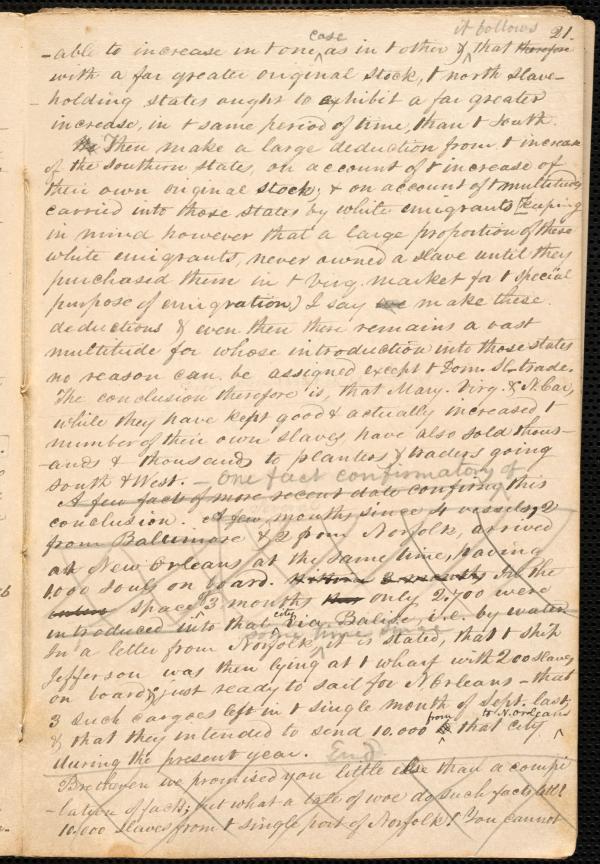 case it follows 21.
-able to increase in t one, as in t other & that therefore
with a far greater original stock, t north slave-
holding states ought to exhibit a far greater
increase, in t same period of time, than t south.
Then make a large deduction from t increase
of the southern states, on account of t increase of
their own original stock; & on account of t multitudes
carried into those states by white emigrants [keeping
in mind however that a large proportion of these
white emigrants, never owned a slave until they
purchased them in t Virg. market for t special
purpose of emigration) I say make these
deductions & even then there remains a vast
multitude for whose introduction into those states
no reason can be assigned except t Dom. Sl. trade.
The conclusion therefore is, that Mary. Virg. & N. Car,
while they have kept good & actually increased t
number of their own slaves, have also sold thous-
-ands & thousands to planters & traders going
South & West. - One fact confirmatory of
A few facts of more recent date confirms this
conclusion. A few months since 4 vessels, 2
from Baltimore & 2 from Norfolk, arrived
at New Orleans at the same time, having
1000 souls on board. In the
space of 3 months only 2.700 were
introduced into that city via Balise, i.e. by water.
some time
In a letter from Norfolk, it is stated, that t ship
Jefferson was then lying at t wharf with 200 slaves
on board, & just ready to sail for N Orleans - that
3 such cargoes left in t single month of Sept. last,
& that they intended to send 10.000 from that city to N. Orleans
during the present year. End
Bretheren we promised you little else than a compi
-lation of facts; but what a tale of woe do such facts tell!
10.000 slaves from t single port of Norfolk! You cannot